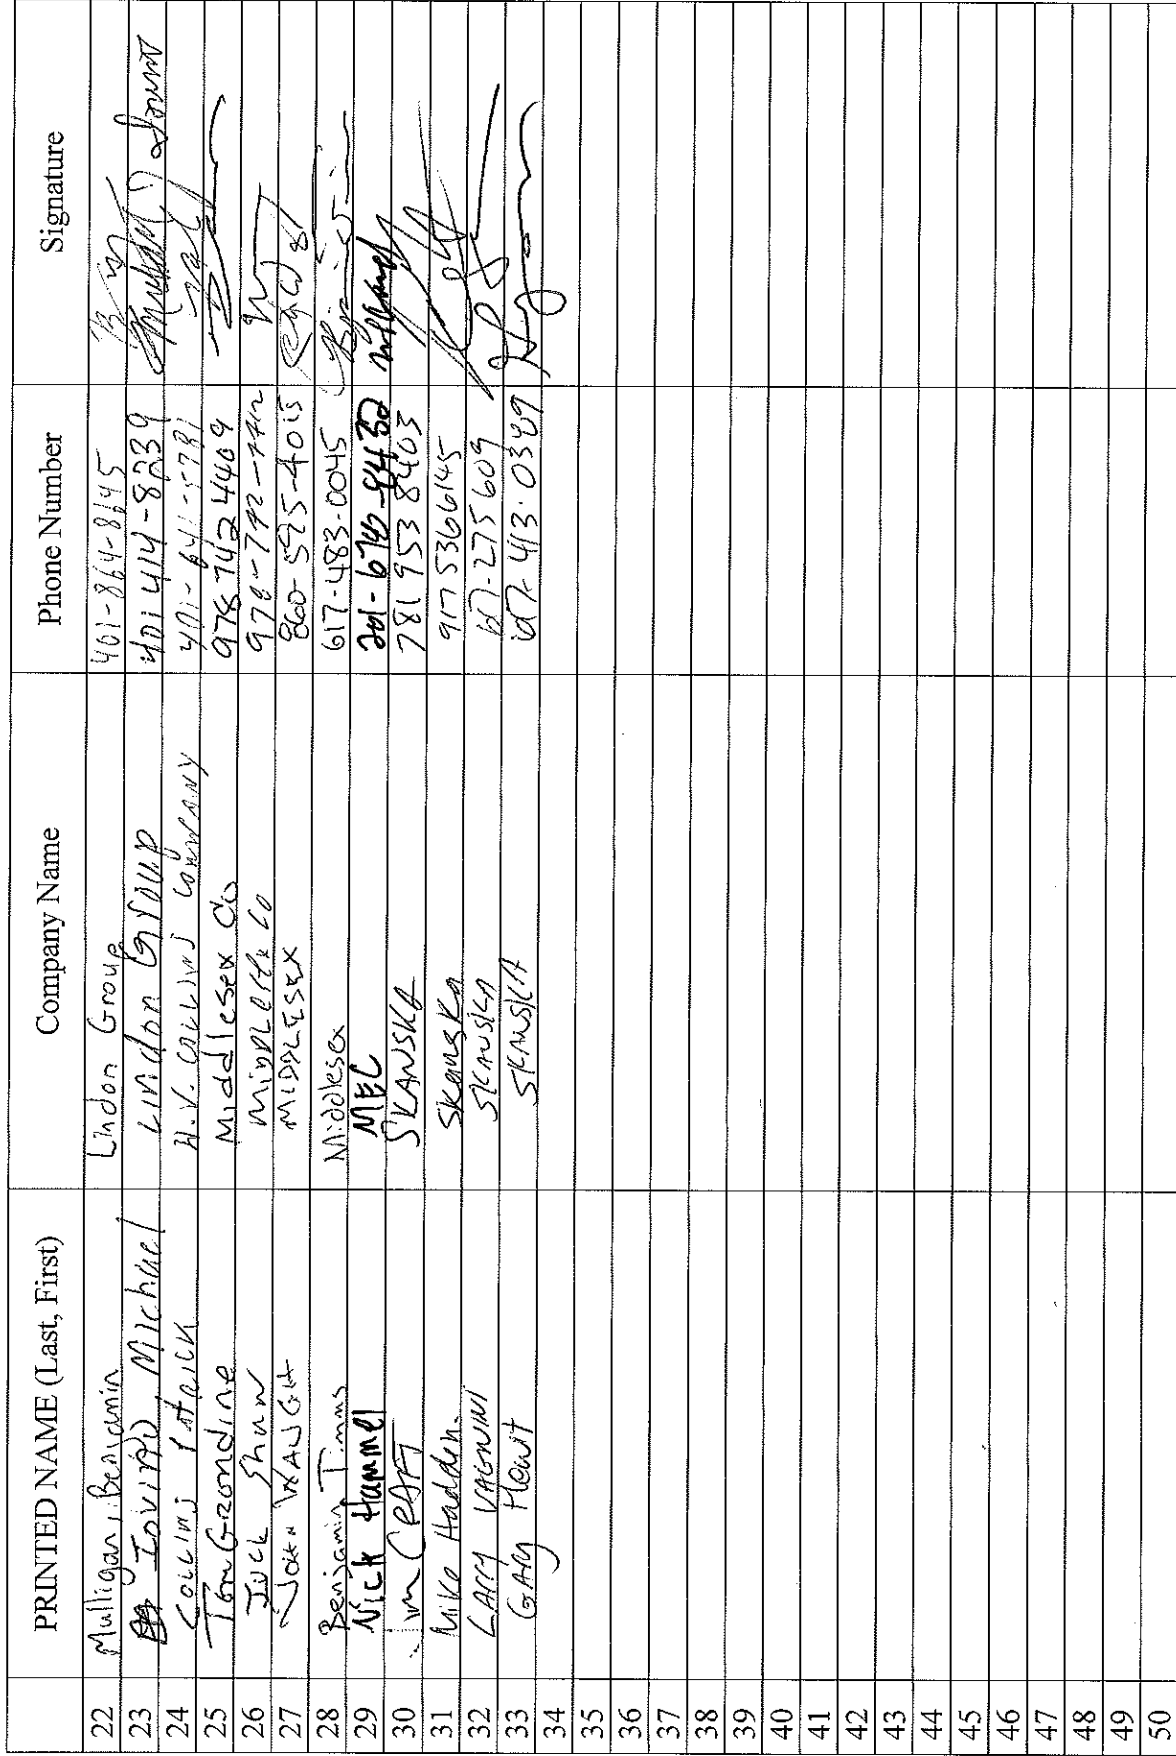 PRINTED NAME (Last, First) Company Name Phone Number Signature
22 Mulligan, Benjamin Lindon Group 401-864-8645
23 Iovino, Michael Lindon Group 401 414-8239
24 Collins Patrick H.V. Collins Company 401-641-5781
25 Tom Grondine Middlesex Co 978 742 4409
26 Jack Shaw Middlesex Co 978-742-
27 John Waugh Middlesex 860-595-4015
28 Benjamin Timms Middlesex 617-483-0045
29 Nick Hammel MEC
30 Jim Craft Skanska 781 953 8403
31 Mike Hadden Skanska 917 5366145
32 Larry Vagnini Skanska 617-275 609
33 Gary Hewit Skanska
34
35
36
37
38
39
40
41
42
43
44
45
46
47
48
49
50